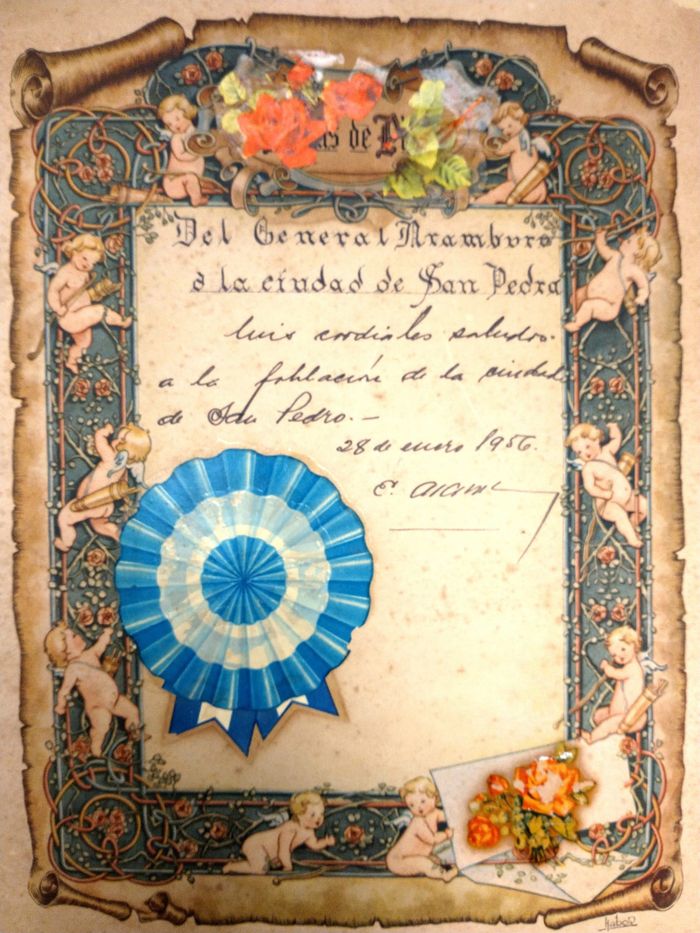 de
Del General Aramburo
a la ciudad de San Pedro
Mis cordiales saludos.
a la población de la ciudad
de San Pedro.—
28 de enero 1956.